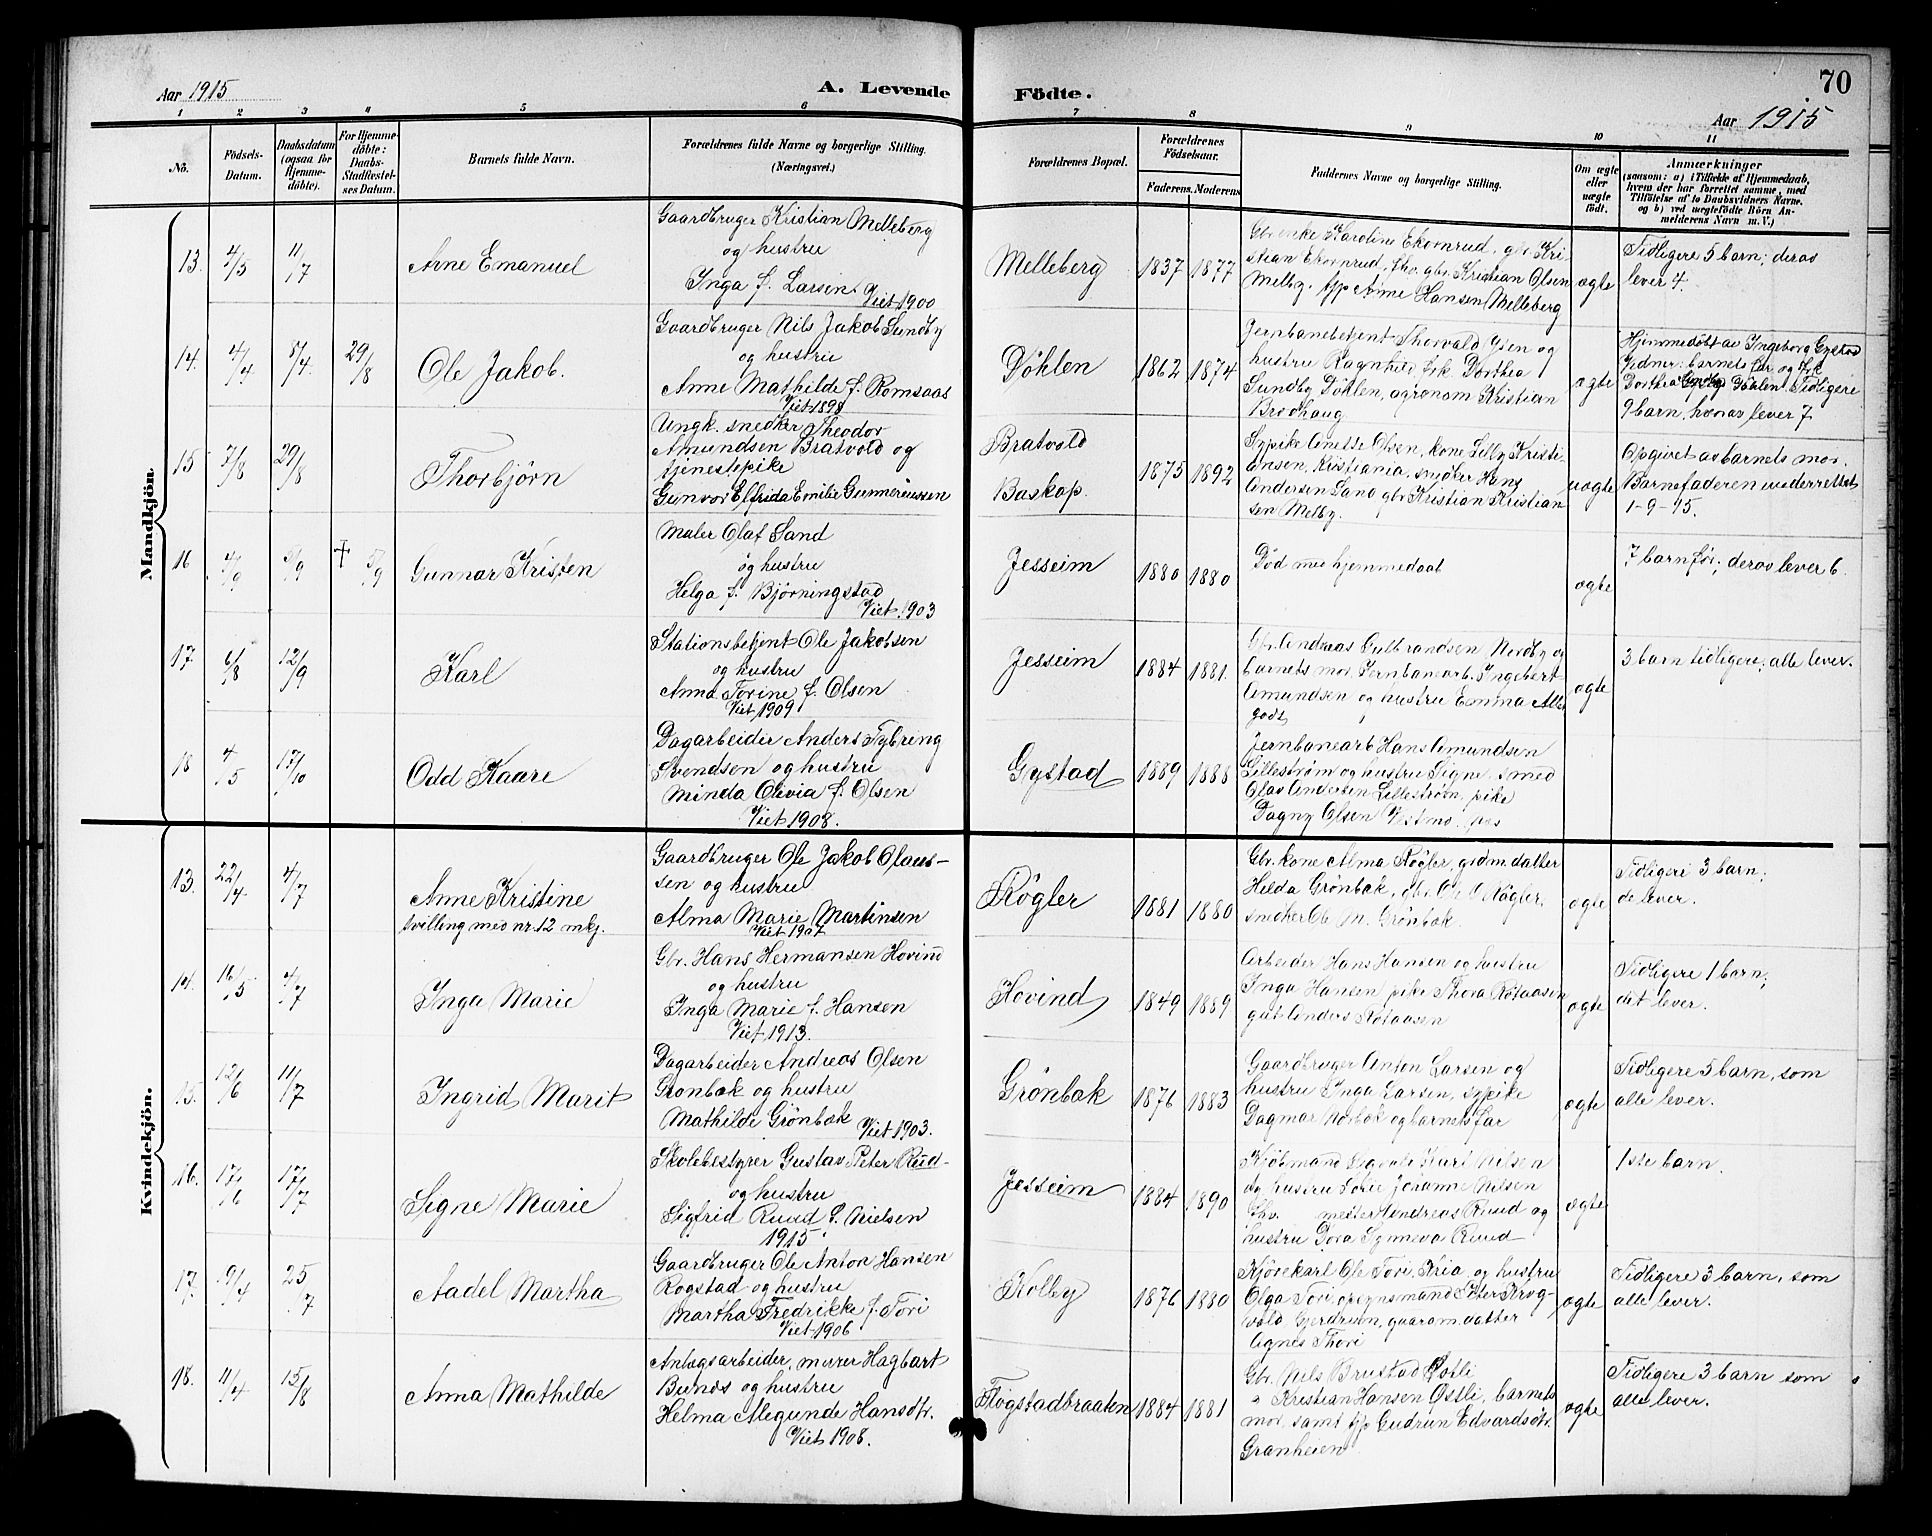 70
Aar 1915
A. Levende Födte.
Aar 1915
1 2 3 4 5 6 7 8 9 10 11
No.
Födsels-
Datum.
Daabsdatum
(ogsaa for
Hjemme-
döbte).
For Hjemme-
döbte:
Daabs-
Stadfæstel-
ses Datum.
Barnets fulde Navn.
Forældrenes fulde Navne og borgerlige Stilling.
(Næringsvei.)
Forældrenes Bopæl.
Forældrenes
Födselsaar.
Faderens. Moderens.
Faddernes Navne og borgerlige Stilling.
Om ægte
eller
uægte
født.
Anmærkninger
(saasom: a) i Tilfælde af Hjemmedaab,
hvem der har forrettet samme, med
Tilføielse af to Daabsvidners Navne.
og b) ved uægtefödte Börn An-
melderens Navn m. V.)
Mandkjön.
13. 4/5 11/7
Arne Emanuel
Gaardbruger Kristian Melleberg
og hustru
Inga f. Larsen
Viet 1900
Melleberg 1837 1877
Gbr enke Karoline Ekornrud, gbr. Kri-
stian Ekornrud, fhv. gbr. Kristian Olsen
Melby, Arne Hansen Melleberg
ægte
Tidligere 5 barn; derav
lever 4.
14. 4/4 8/4 29/8
Ole Jakob.
Gaardbruger Nils Jakob Sundby
og hustru
Anne Mathilde f. Romsaas
Viet 1898
Döhlen 1862 1874
Jernbanebetjent Thorvald Lien og
hustru Ragnhild, frk. Dorthea
Sundby Döhlen, agronom Kristian
Brodhaug
ægte
Hjemmedöbt av Ingeborg Gystad
Vidner: barnets far og frk
Dorthea Döhlen. Tidligere
9 barn, hvorav lever 7
15 7/8 29/8
Thorbjörn
Ungk. snedker Theodor
Amundsen Bratvold og
tjenestepike
Gunvor Elfrida Emilie Gunneriussen
Bratvold
Baskop. 1875 1892
Sypike Anette Olsen, kone Lilly Kristi-
ansen, Kristiania, snedker Hans
Andersen Sand, gbr Kristian Kristian-
sen Melby.
uægte
Opgivet av barnets mor.
Barnefaderen underrettet
1-9-15.
16 4/9 5/9 † 5/9
Gunnar Kristen
Maler Olaf Sand
og hustru
Helga f. Bjørningstad
Viet 1903
Jesseim 1880 1880
Död med hjemmedaab
ægte
7 barn før; derav lever 6.
17. 6/8 12/9
Karl
Stationsbetjent Ole Jakobsen
og hustru
Anna Torine f. Olsen
Viet 1909
Jesseim 1884 1881.
Gbr. Andreas Gulbrandsen Nordby og
barnets mor. Jernbanearb. Ingebert
Amundsen og hustru Emma Alle-
godt
ægte
3 barn tidligere; alle lever.
18 4/5 17/10
Odd Kaare
Dagarbeider Anders Tybring
Svendsen og hustru
Minda Olivia f. Olsen
Viet 1908.
Gystad 1889 1888
Jernbanearb Hans Amundsen
Lilleström og hustru Signe, smed
Olav Andersen Lilleström, pike
Dagny Olsen Vestmo
Kvindekjön.
13. 22/4 4/7
Anne Kristine
tvilling med nr. 12 mkj.
Gaardbruger Ole Jakob Olaus-
sen og hustru
Alma Marie Martinsen
Viet 1907
Rögler 1881 1880
Gbr. kone Alma Rögler, grdm. datter
Helda Grönbæk, gbr. O. Rögler,
snedker Ole M. Grönbæk
ægte
Tidligere 3 barn;
de lever.
14. 16/5 4/7
Inga Marie
Gbr. Hans Hermansen Hovind
og hustru
Inga Marie f. Hansen
Viet 1913.
Hovind 1849 1889
Arbeider Hans Hansen og hustru
Inga Hansen, pike Thora Rötaasen
gut Anders Rötaasen
ægte
Tidligere 1 barn;
det lever.
15. 12/6 11/7
Ingrid Marit
Dagarbeider Andreas Olsen
Grönbæk og hustru
Mathilde Grönbæk Viet 1903.
Grönbæk 1876 1883
Gaardbruger Anton Larsen og
hustru Inga Larsen, sypike
Dagmar og barnets far
ægte
Tidligere 5 barn, som
alle lever.
16. 17/6 17/7
Signe Marie
Skolebestyrer Gustav Peter Ruud
og hustru
Sigfrid Ruud f. Nielsen
1915
Jesseim 1884 1890
Kjöbmand Sigvald Kurt Nilsen
og hustru Sofie Johanne Nilsen
fhv. mester Andreas Ruud og
hustru Dora Synneva Ruud
ægte
1ste barn.
17. 19/4 25/7
Aadel Martha
Gaardbruger Ole Anton Hansen
Rogstad og hustru
Martha Fredrikke f. Tori
Viet 1906
Kolby 1876 1880
Kjörekarl Ole Tori, Kria, og hustru
Olga Tori, opsynsmand Peter Krog-
vold Gjerdrum, gaardm. datter
Agnes Thori
ægte
Tidligere 3 barn, som
alle lever.
18. 11/4 15/8
Anna Mathilde
Anlægsarbeider, murer Hagbart
Bunds og hustru
Helma Alegunde Hansdtr.
Viet 1908.
Flogstadbraaten 1884 1881
Gbr. Nils Brustad Østli
" Kristian Hansen Østli, barnets
mor, samt Gudrun Edvardsdtr.
Granheien
ægte
Tidligere 3 barn som
alle lever.